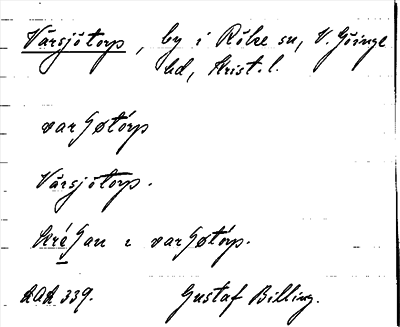 Vårsjötorp, by i Röke sn, V. Göinge
hd, Krist. l.
varʃøtórp
Vårsjötorp.
kréʃan ɩ varʃøtórp.
LAL 339. Gustaf Billing.